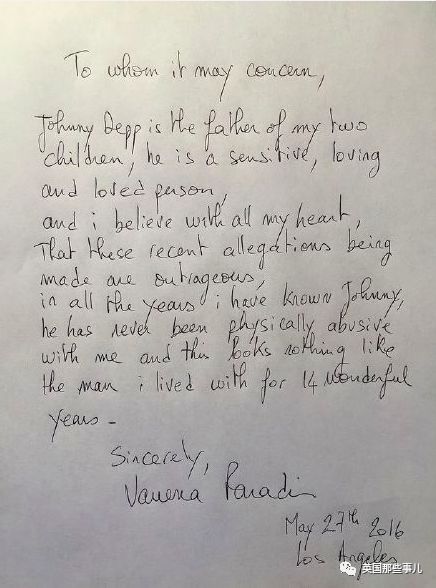 To whom it may concern,
Johnny Depp is the father of my two
children, he is a sensitive, loving
and loved person,
and i believe with all my heart,
That these recent allegations being
made are outrageous,
in all the years i have known Johnny,
he has never been physically abusive
with me and this looks nothing like
the man i lived with for 14 wonderful
years -
Sincerely,
Vanessa Paradis
May 27th 2016
Los Angeles
英国那些事儿